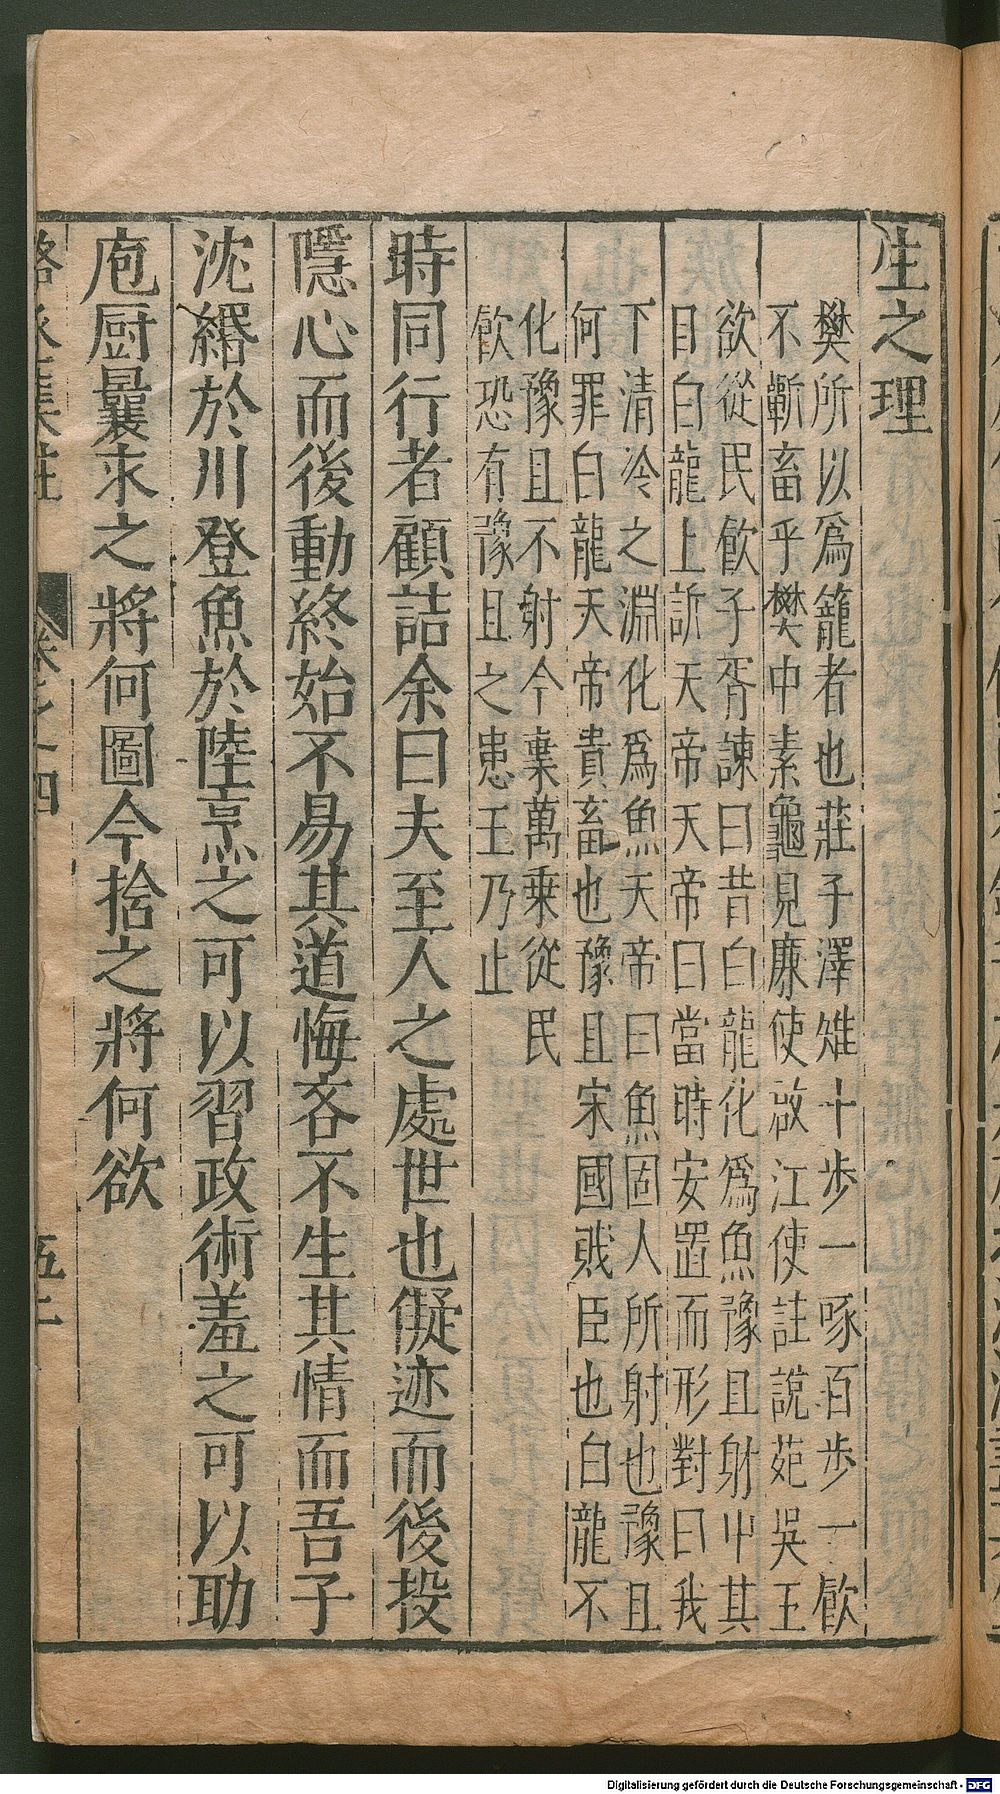 生之理
樊所以為籠者也莊子澤雉十步一啄百步一飲
不蘄畜乎樊中素龜見廉使啟江使註說苑吳王
欲從民飲子胥諫曰昔白龍化為魚豫且射中其
目白龍上訴天帝天帝曰當時安置而形對曰我
下清冷之淵化為魚天帝曰魚固人所射也豫且
何罪白龍天帝貴畜也豫且宋國賤臣也白龍不
化豫且不射今棄萬乗從民
飲恐有豫且之患王乃止
時同行者顧詰余曰夫至人之處世也儗迹而後投
隱心而後動終始不易其道悔吝不生其情而吾子
沈緡於川登魚於陸烹之可以習政術羞之可以助
庖厨曩求之將何圖今捨之將何欲
駱丞集註
卷之四
五十
Digitalisierung gefördert durch die Deutsche Forschungsgemeinschaft - DFG